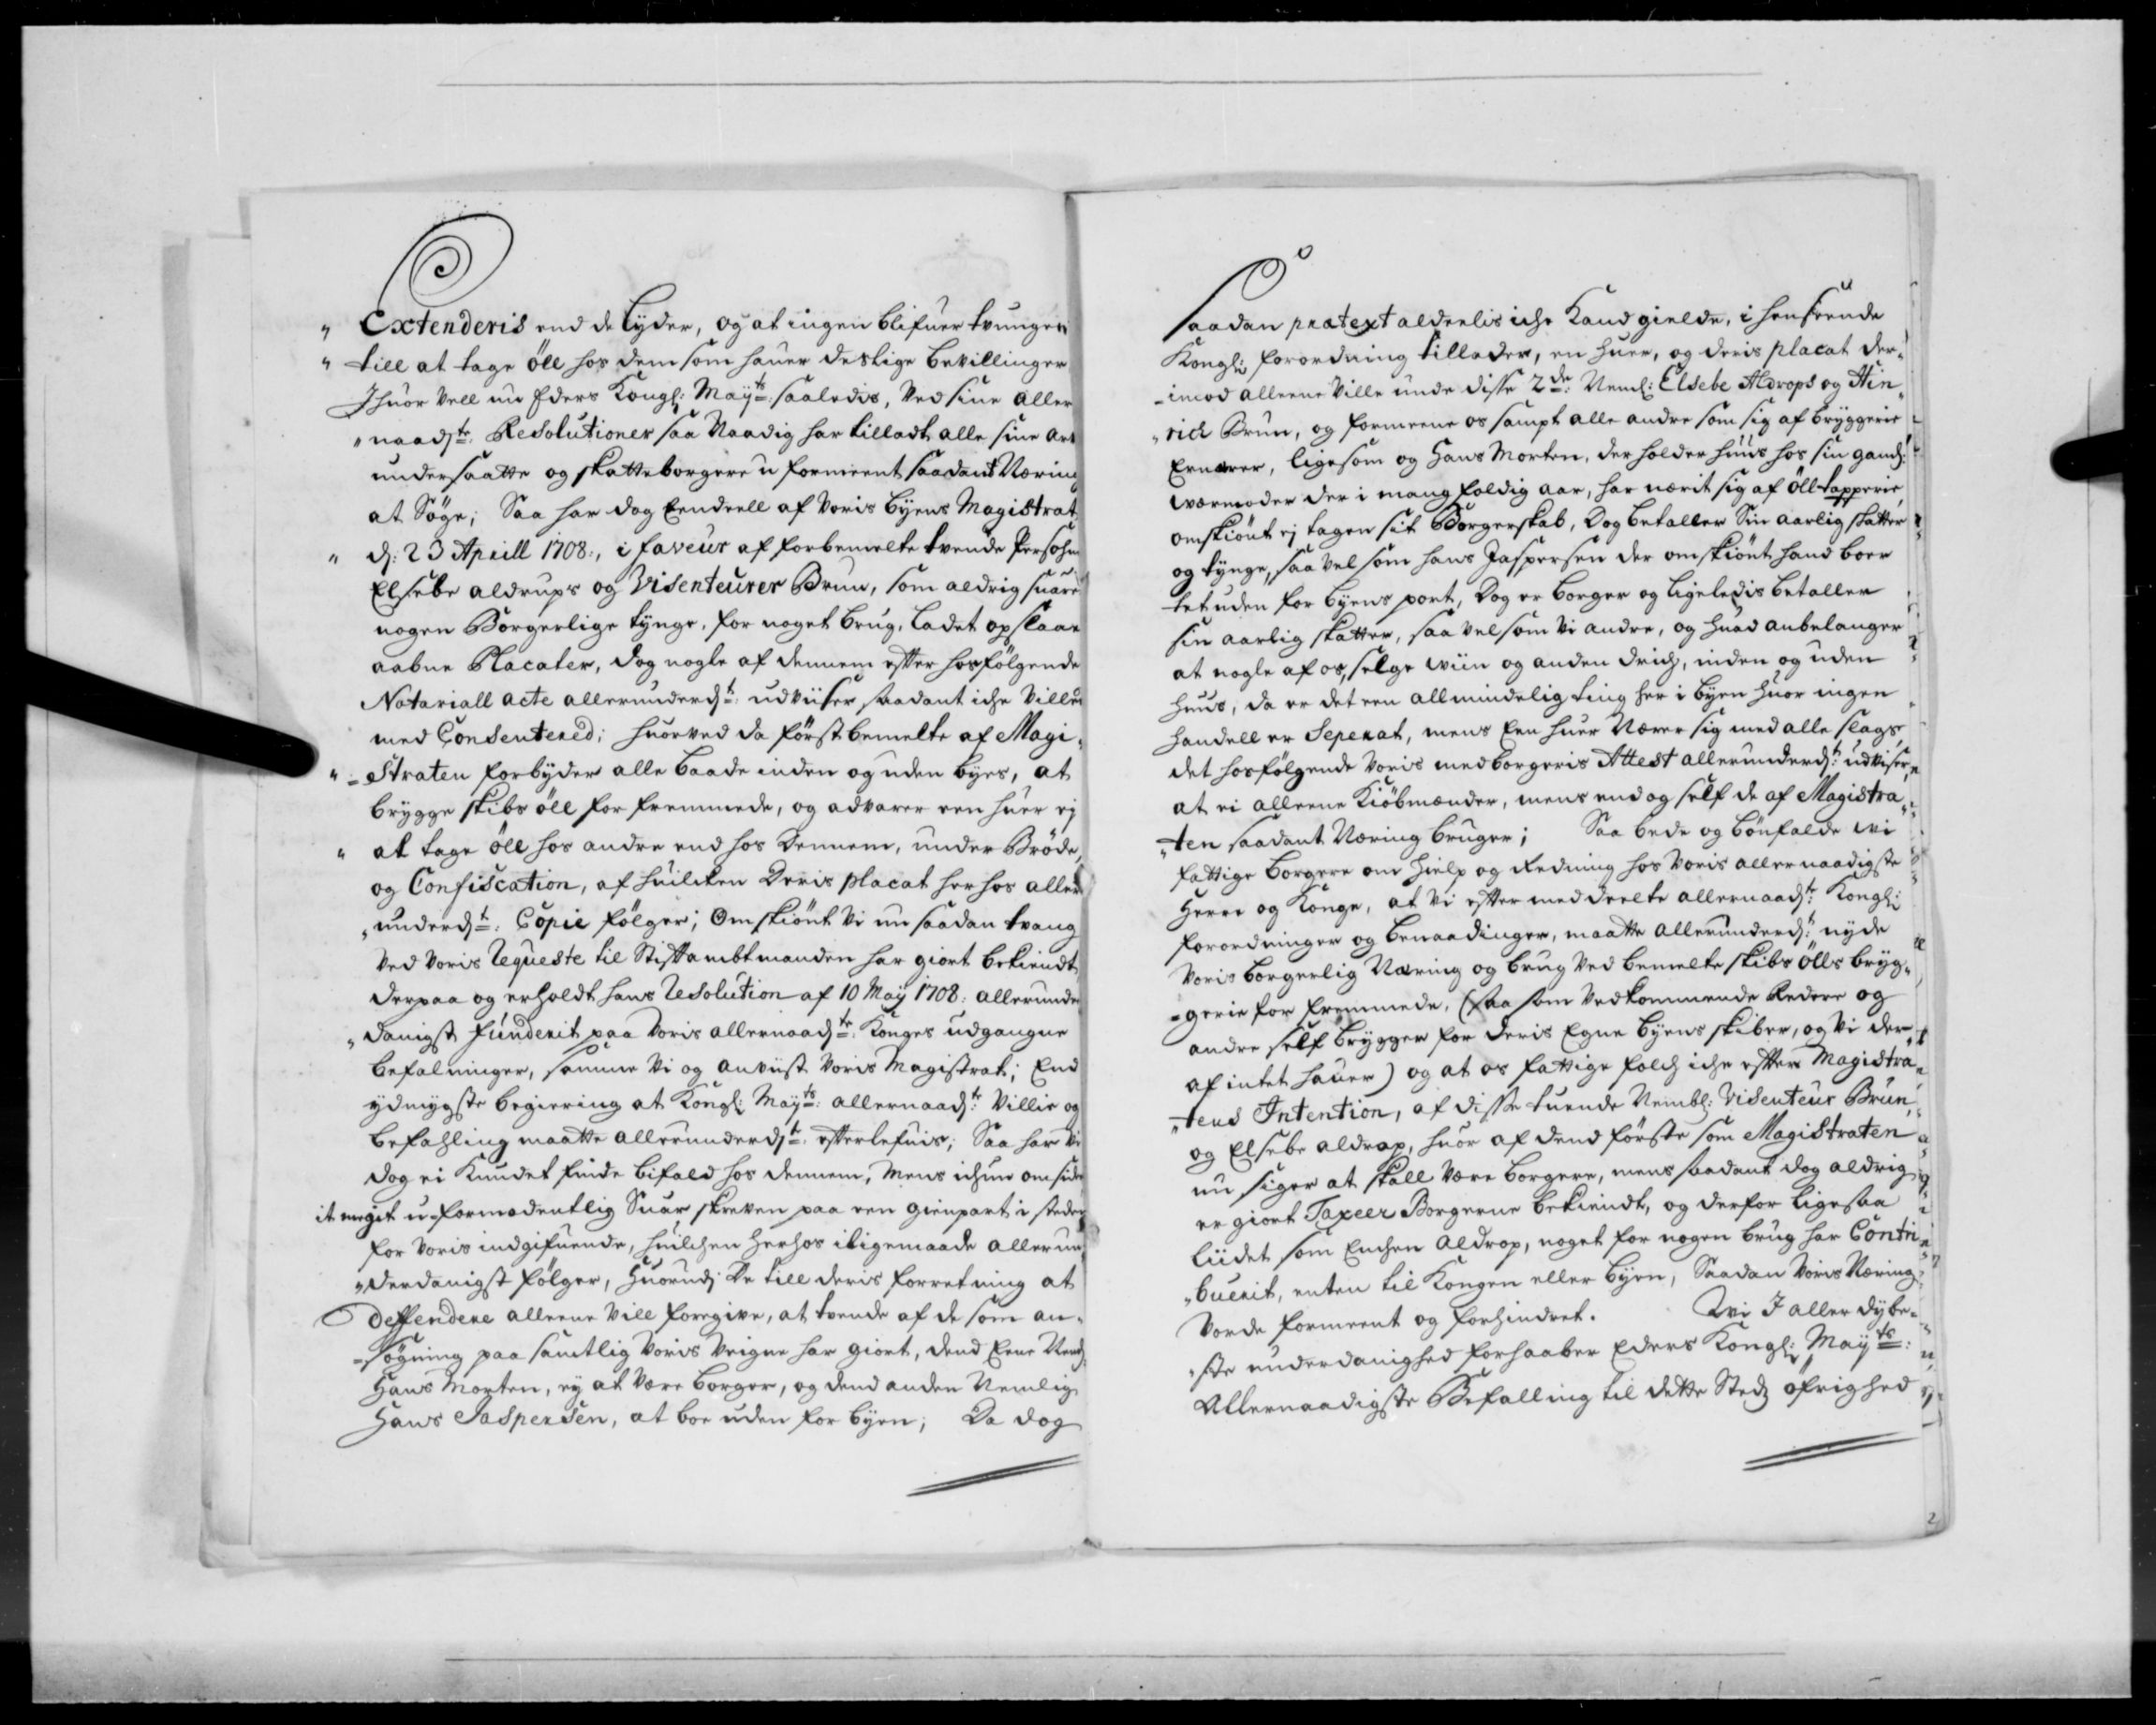 " Extenderis end de lyder, og at ingen blifuer tvungen
" till at tage öll hos dem som hauer deslige bevillinger
Jhuor vell nu Eders Kongl: Mayts: saaledis, ved sine aller
" naadste: Resolutioner saa Naadig har tilladt alle sine arf
undersaatte og skatteborgere u formeent saadant Næring
at Söge; Saa har dog Eendeell af voris byens Magistrat
" d: 23 Aprill 1708:, i faveur af forbemelte tvende Persohn
Elsebe aldrups og Visenteurer Brun, som aldrig suare
nogen Borgerlige tynge, for noget brug, ladet opslaae
aabne Placater, dog nogle af dennem efter hosfölgende
Notariall acte allerunderdst: udviiser saadant iche ville
med Consentered; huorved da först bemelte af Magi-
"=Straten forbyder alle baade inden og uden byes, at
brygge skibs öll for fremmede, og advarer een huer ej
" at tage öll hos andre end hos dennem, under Bröde,
og Confiscation, af huilcken Deris placat herhos aller
"underdst: Copie fölger; Omskiönt vi nu saadan tvang
ved voris Requeste til Stiftambtmanden har giort bekiendt
derpaa og erholdt hans Resolution af 10 May 1708: allerunder
"danigst funderit paa voris allernaadste: Konges udgangne
befalninger, samme vi og anviist voris Magistrat; End
ydmygste begiering at Kongl: Mayts: allernaadste villie og
befahling maatte allerunderdst: efterlefuis; Saa har vi
dog ei Kundet finde bifald hos dennem, mens ichun omsider
it meget u-formodentlig Suar skreven paa een gienpart i steden
for voris indgifuende, huilchen herhos iligemaade allerun-
"derdanigst fölger, Huorudj De till deris forretning at
deffendere alleene vill foregive, at tvende af de som an-
=sögning paa samtlig voris veigne har giort, dend Eene Neml:
Hans Morten, ey at være borger, og dend anden Nemlig
Hans Jaspersen, at boe uden for byen; Da dog
Saadan prætext aldeelis iche Kand gielde, i henseende
Kongl: forordning tillader, en huer, og deris placat der-
=imod alleene ville unde disse 2de: Neml: Elsebe Aldrops og Hin-
"rich Brun, og formeene os sampt alle andre som sig af bryggerie
Ernærer, ligesom og Hans Morten, der holder huus hos sin gaml:
værmoder der i mangfoldig aar, har nærit sig af öll tapperie,
omskiönt ej tagen sit Borgerskab, Dog betaller Sin aarlig skatter
og tynge, saa vel som Hans Jaspersen der omskiönt hand boer
tet uden for byens port, Dog er borger og ligeledis betaller
sin aarlig skatter, saa velsom vi andre, og huad anbelanger
at nogle af os, selge wiin og anden drich, inden og uden
huus, da er det een allmindelig ting her i byen huor ingen
handell er Seperat, mens Een huer Nærer sig med alle slags,
det hosfölgende voris medborgeris Attest allerunderdst: udviser,
at ei alleene Kiöbmænder, mens endog self de af Magistra-
"ten saadant Næring bruger; Saa bede og bönfalde wi
fattige borgere om hielp og redning hos voris allernaadigste
Herre og Konge, at vi efter meddeelte allernaadste: Kongl:
forordninger og benaadinger, maatte allerunderdst: nyde
voris borgerlig Næring og brug ved bemelte skibs ölls bryg-
=gerie for fremmede, (saa som vedkommende Redere og
andre self brygger for deris Egne byens skiber, og vi der
af intet hauer) og at os fattige folch iche efter Magistra-
"tens Intention, af disse tuende Nembl: Visenteur Brun,
og Elsebe aldrop, huor af dend förste som Magistraten
nu siger at skall være borgere, mens saadant dog aldrig
er giort Taxeer Borgerne bekiendt, og derfor ligesaa
liidet som Enchen Aldrop, noget for nogen brug har Contri-
"buerit, enten til Kongen eller byen, Saadan voris Næring
vorde formeent og forhindret. Wi J aller dybe-
"ste underdanighed forhaaber Eders Kongl: Mayts:
Allernaadigste Befalling til dette Stedz öfrighed
2